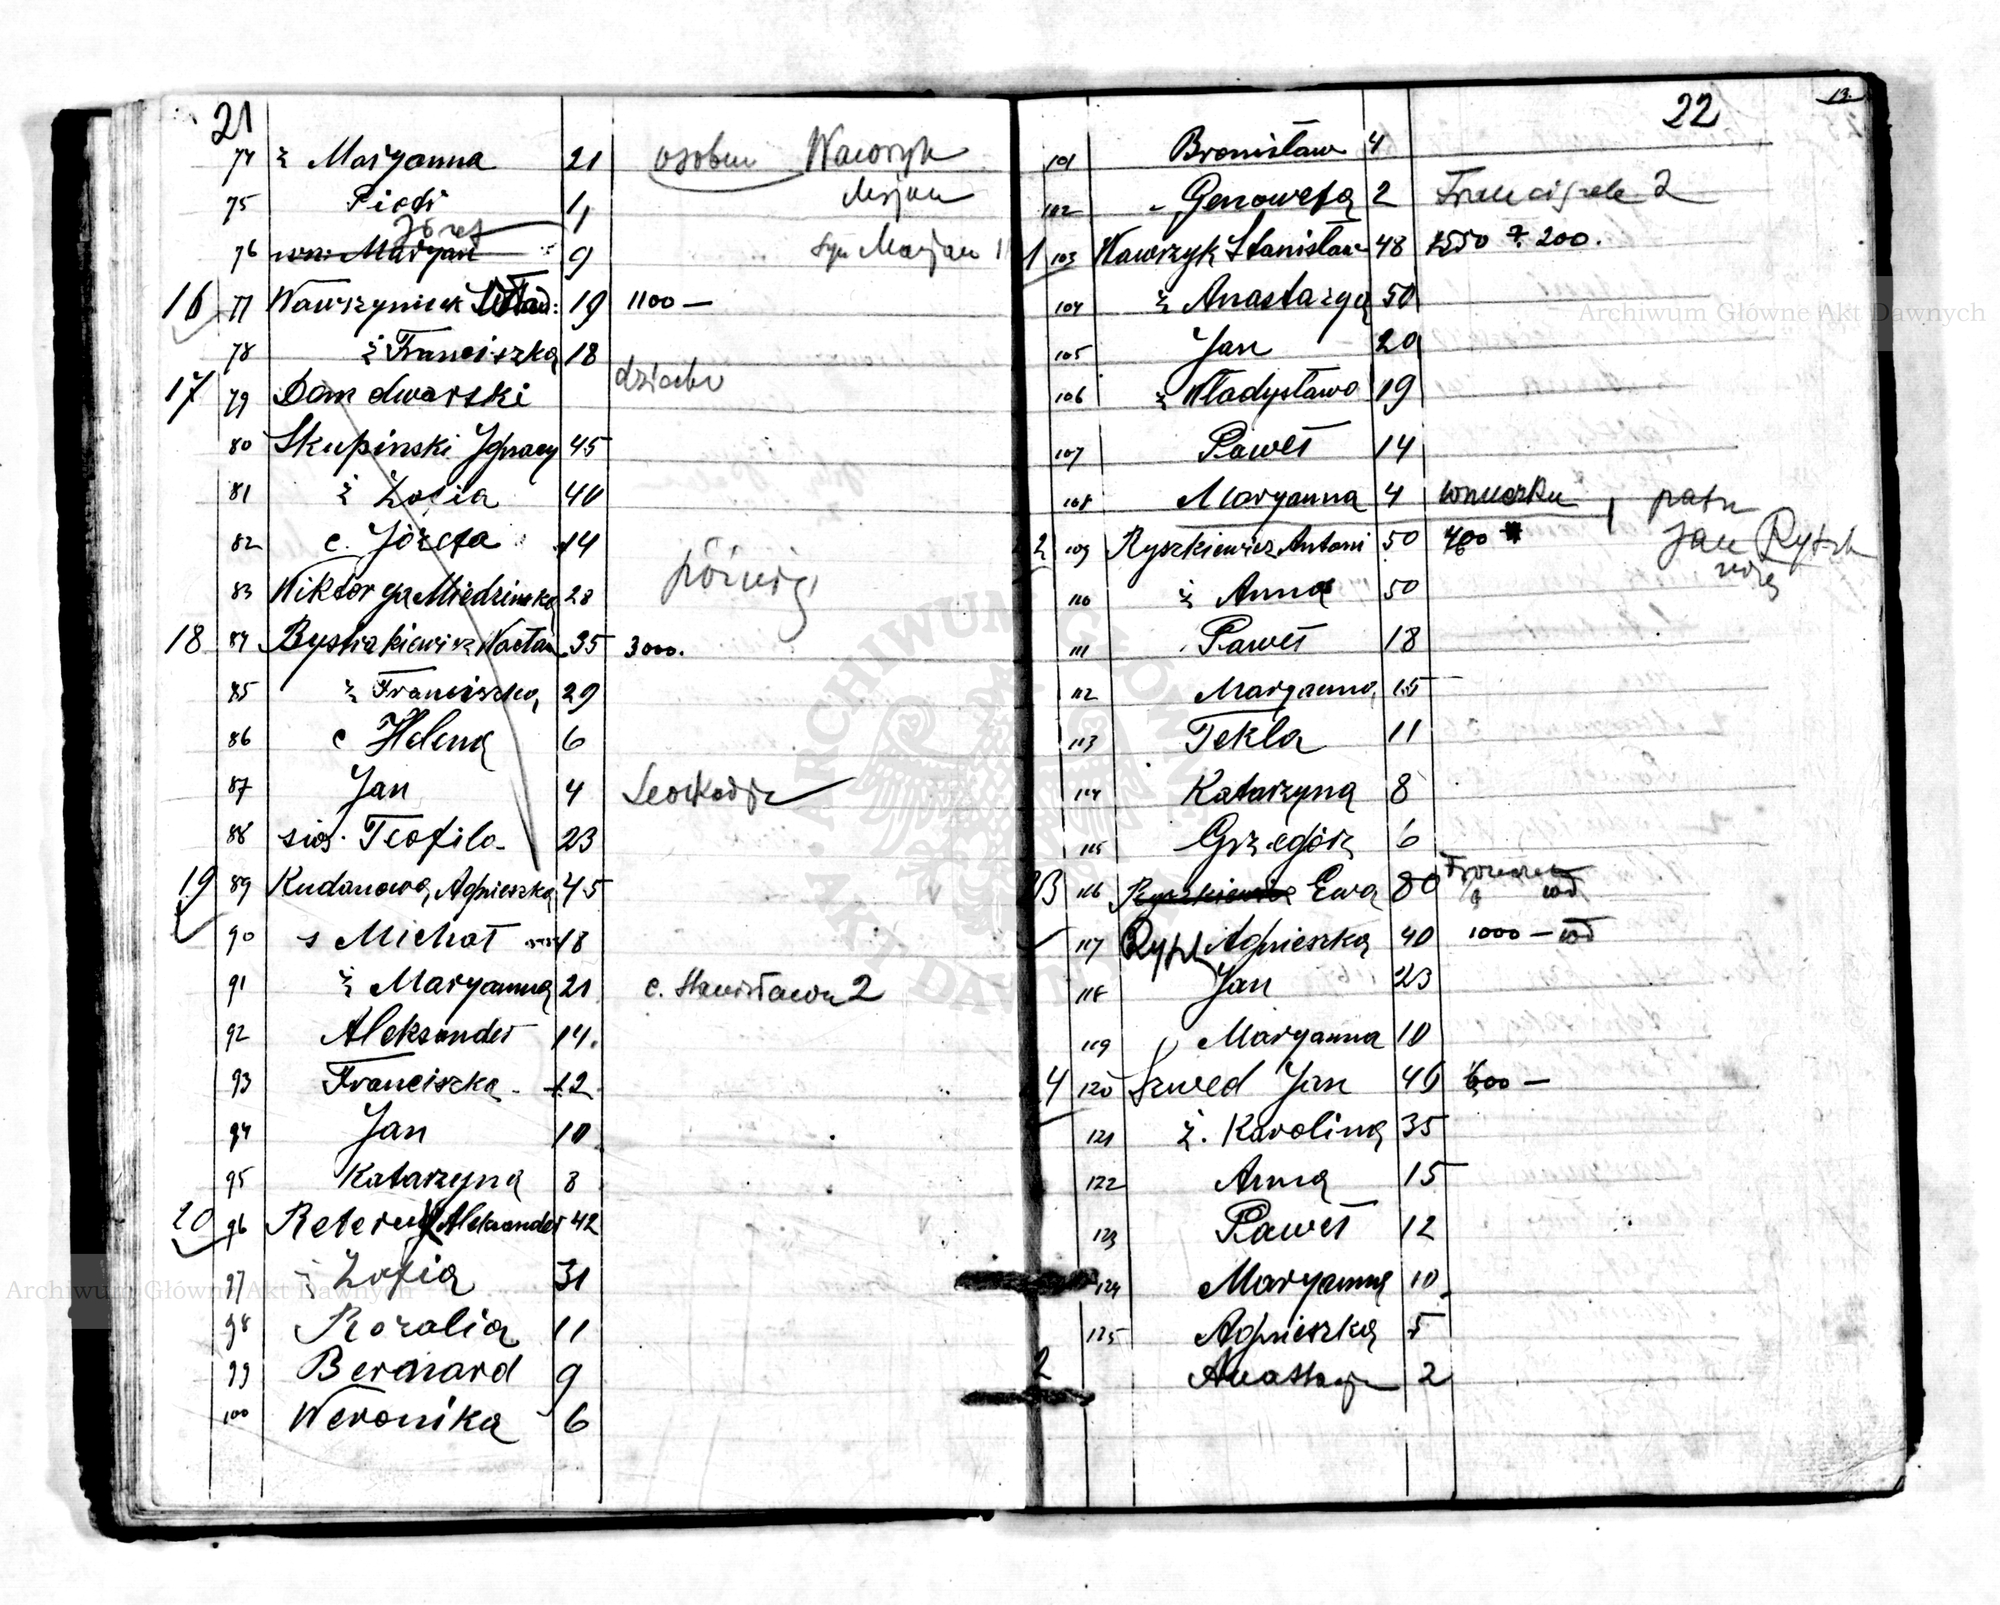 21
74 ż Maryanna 21 osobno Wawrzyk
Marjan
75 Piotr 1
Józef
76 wn. Maryan 9 syn Marjan 11
16 77 Wawrzyniak Wład: 19 1100 —
78 ż Franciszka 18
17 79 Dom dworski
80 Skupinski Ignacy 45
81 ż Zofia 40
82 c. Józefa 14
83 Wiktorya Miedzinska 20
18 84 Bystrakiewicz Wacław 35 3000.
85 ż Franciszka 29
86 c Helena 6
87 Jan 4 Leokadja
88 sios. Teofila 23
19 89 Kudanowa Agnieszka 45
90 s Michał 18
91 ż Maryanna 21 c. Stanisława 2
92 Aleksander 14.
93 Franciszka 12
94 Jan 10
95 Katarzyna 8
20 96 Aleksander 42
97 ż Zofia 31
98 Rozalia 11
99 Bernard 9
100 Weronika 6
22
13.
101 Bronisław 4
102 Genowefa 2 2
1 103 Wawrzyk Stanisław 48 200.
104 ż Anastazya 50
105 Jan 20
106 ż Władysława 19
107 Paweł 14
108 Maryanna 4 wnuczka
2 109 Ryszkiewicz Antoni 50 400
Jan
110 ż Anna 50
111 Paweł 18
112 Maryanna 15
113 Tekla 11
114 Katarzyna 8
115 Grzegórz 6
3 116 Ryszkiewicz Ewa 80
117 Agnieszka 40 1000 —
118 Jan 23
119 Maryanna 10
4 120 Szwed Jan 46 600 —
121 ż. Karolina 35
122 Anna 15
123 Paweł 12
124 Maryanna 10
125 Agnieszka 5
2 Anastazja 2
Archiwum Główne Akt Dawnych
Archiwum Główne Akt Dawnych
ARCHIWUM GŁÓWNE AKT DAWNYCH